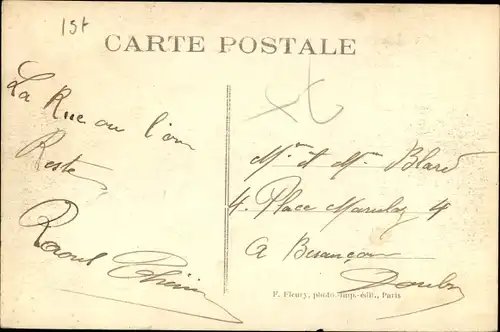 15t
CARTE POSTALE
La Rue ou l'on
Reste
Raoul
Mr et Mme Blard
4. Place Marulaz 4
a Besançon
Doubs
F. Fleury, phot.-imp.-édit., Paris